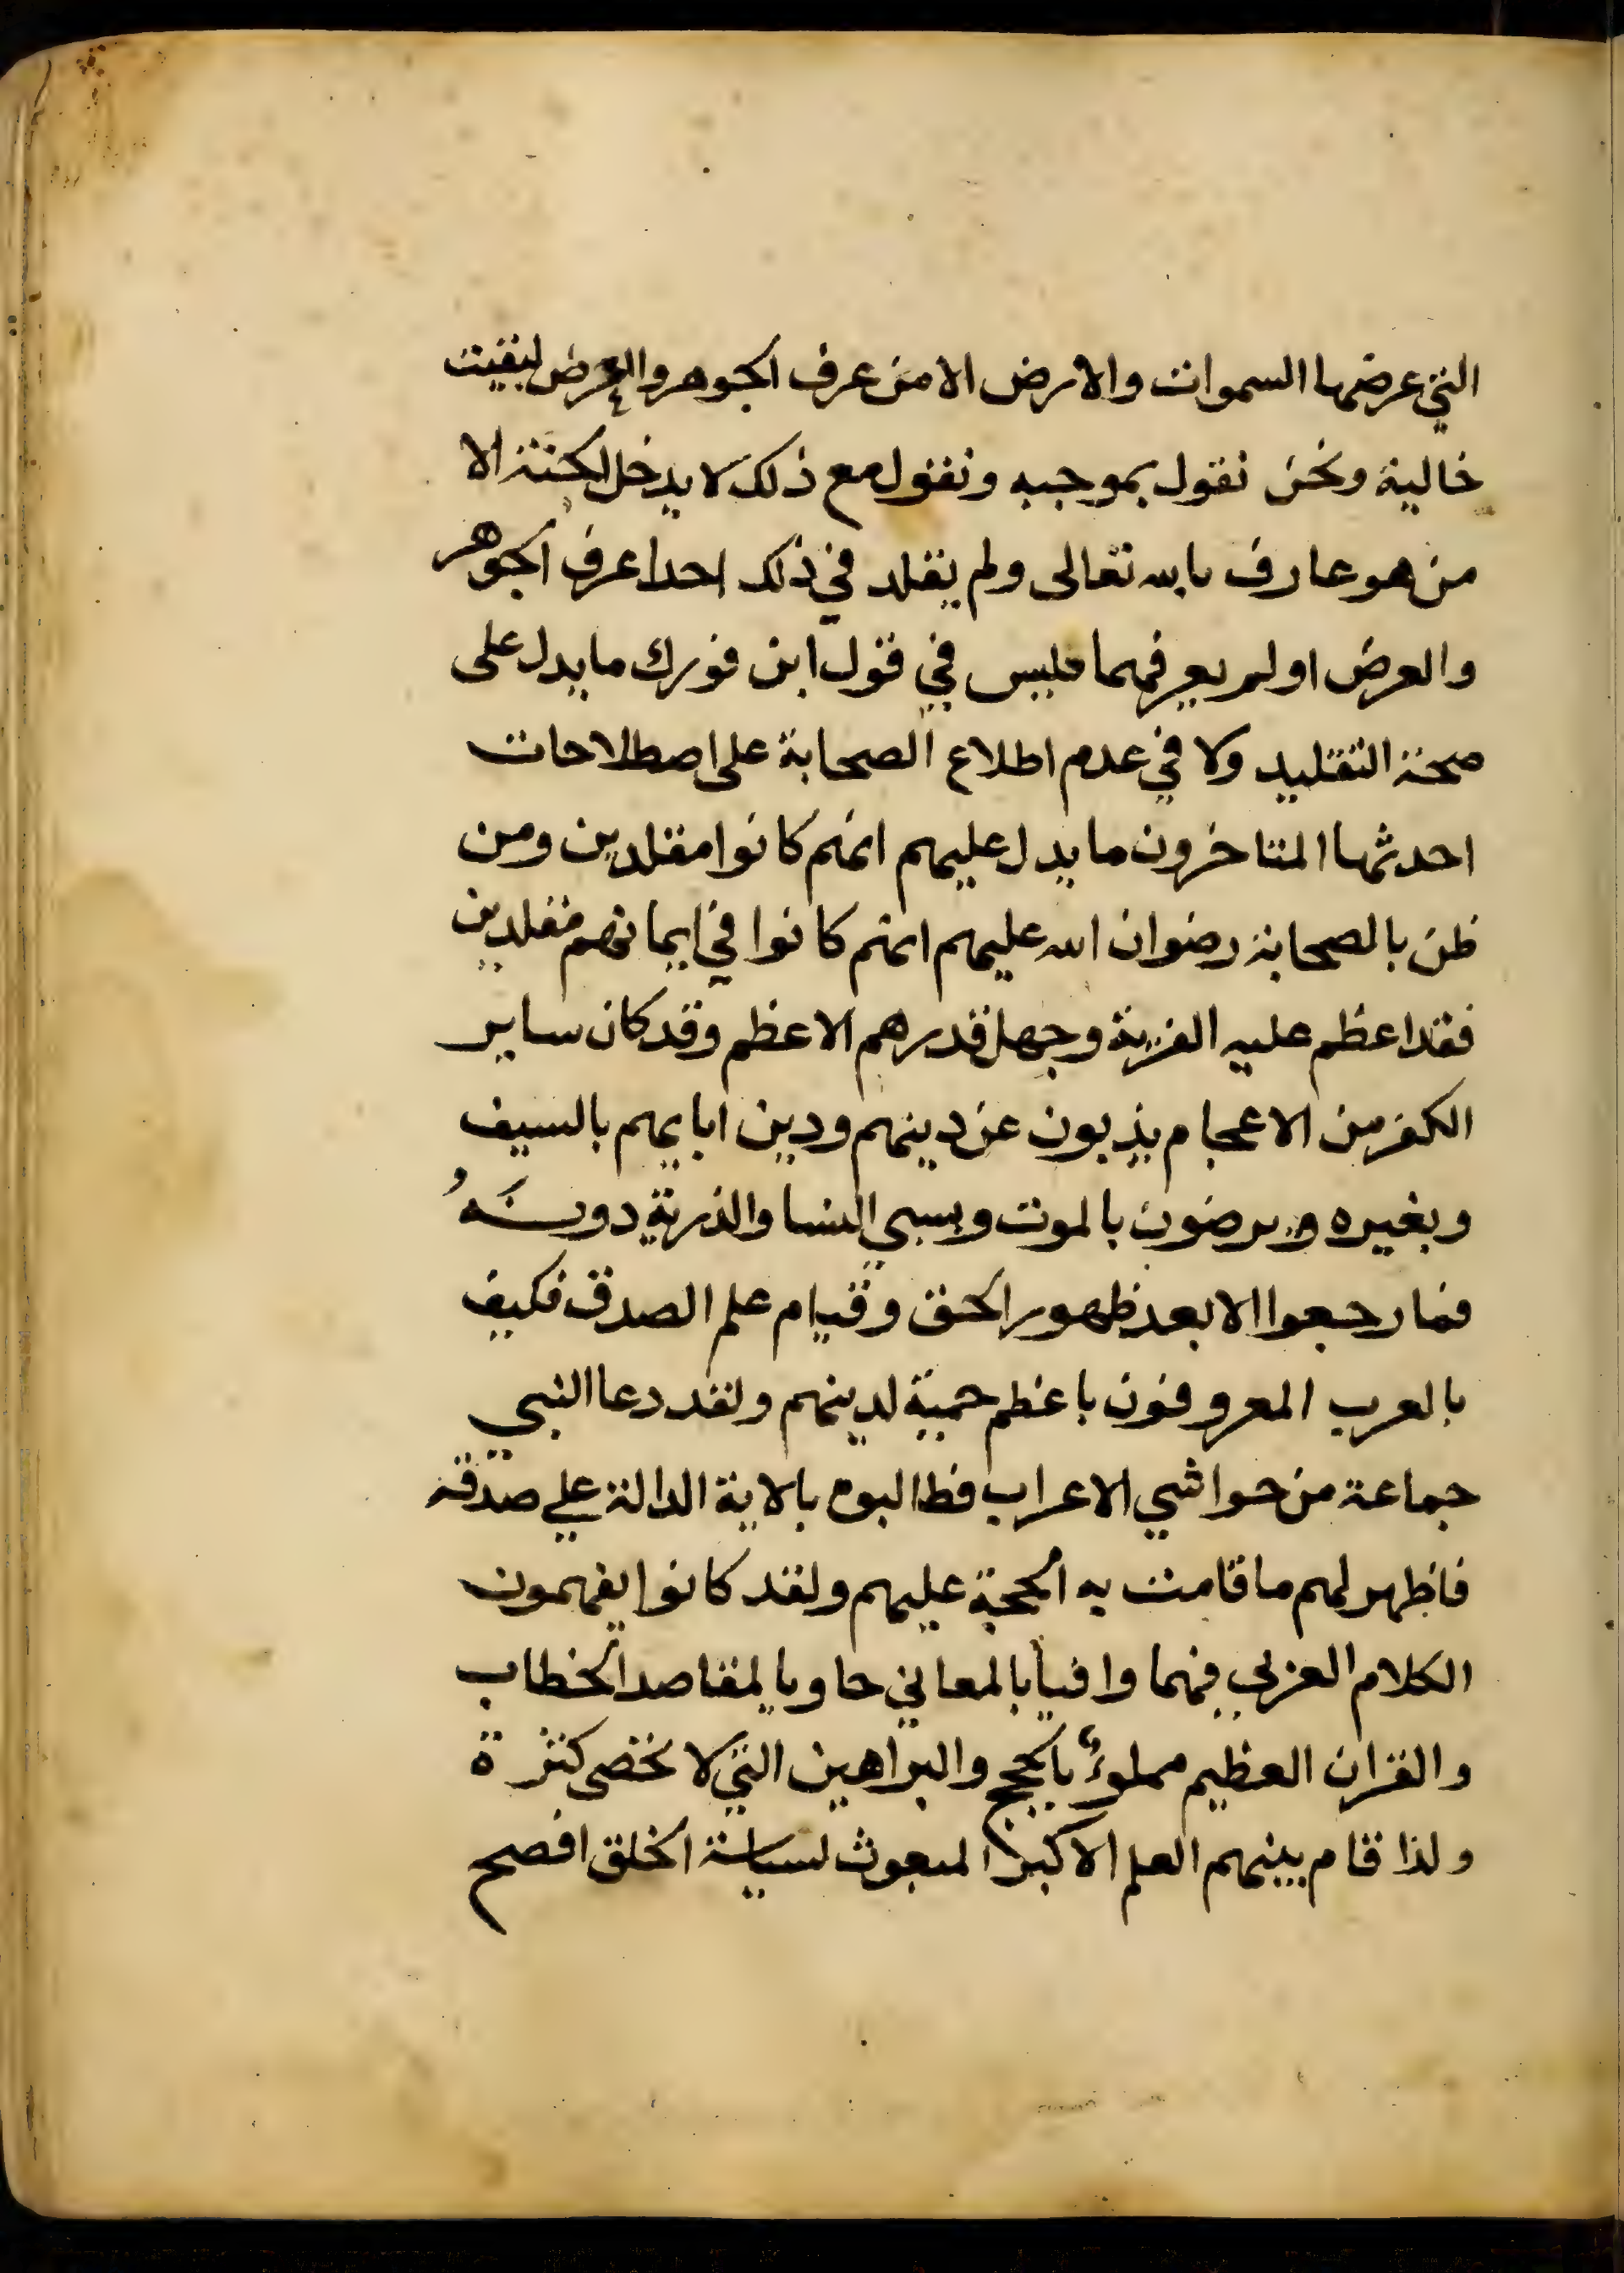 التي عرضها السموات والارض الا من عرف الجوهر والعرض لبقيت
خالية ونحن نقول بموجبه ونقول مع ذلك لا يدخل الجنة الا
من هو عارف بالله تعالى ولم يقلد في ذلك احدا عرف الجوهر
والعرض او لم يعرفهما فليس في قول ابن فورك ما يدل على
صحة التقليد ولا في عدم اطلاع الصحابة على اصطلاحات
احدثها المتاخرون ما يدل عليهم انهم كانوا مقلدين ومن
ظن بالصحابة رضوان الله عليهم انهم كانوا في ايمانهم مقلدين
فقد اعظم عليه الفرية وجهل قدرهم الاعظم وقد كان ساير
الكفر من الاعجام يذبون عن دينهم ودين ابايهم بالسيف
وبغيره ويرضون بالموت وبسبي النسا والذرية دونه
فما رجعوا الا بعد ظهور الحق وقيام علم الصدق فكيف
بالعرب المعروفون باعظم حمية لدينهم ولقد دعا النبي
جماعة من حواشي الاعراب فطالبوه بالاية الدالة علي صدقه
فاظهر لهم ما قامت به الحجة عليهم ولقد كانوا يفهمون
الكلام العربي فهما وافيا بالمعاني حاويا لمقاصد الخطاب
والقران العظيم مملوءٌ بالحجج والبراهين التي لا تحصى كثرة
ولذا قام بينهم العلم الاكبر المبعوث لسياسة الخلق افصح